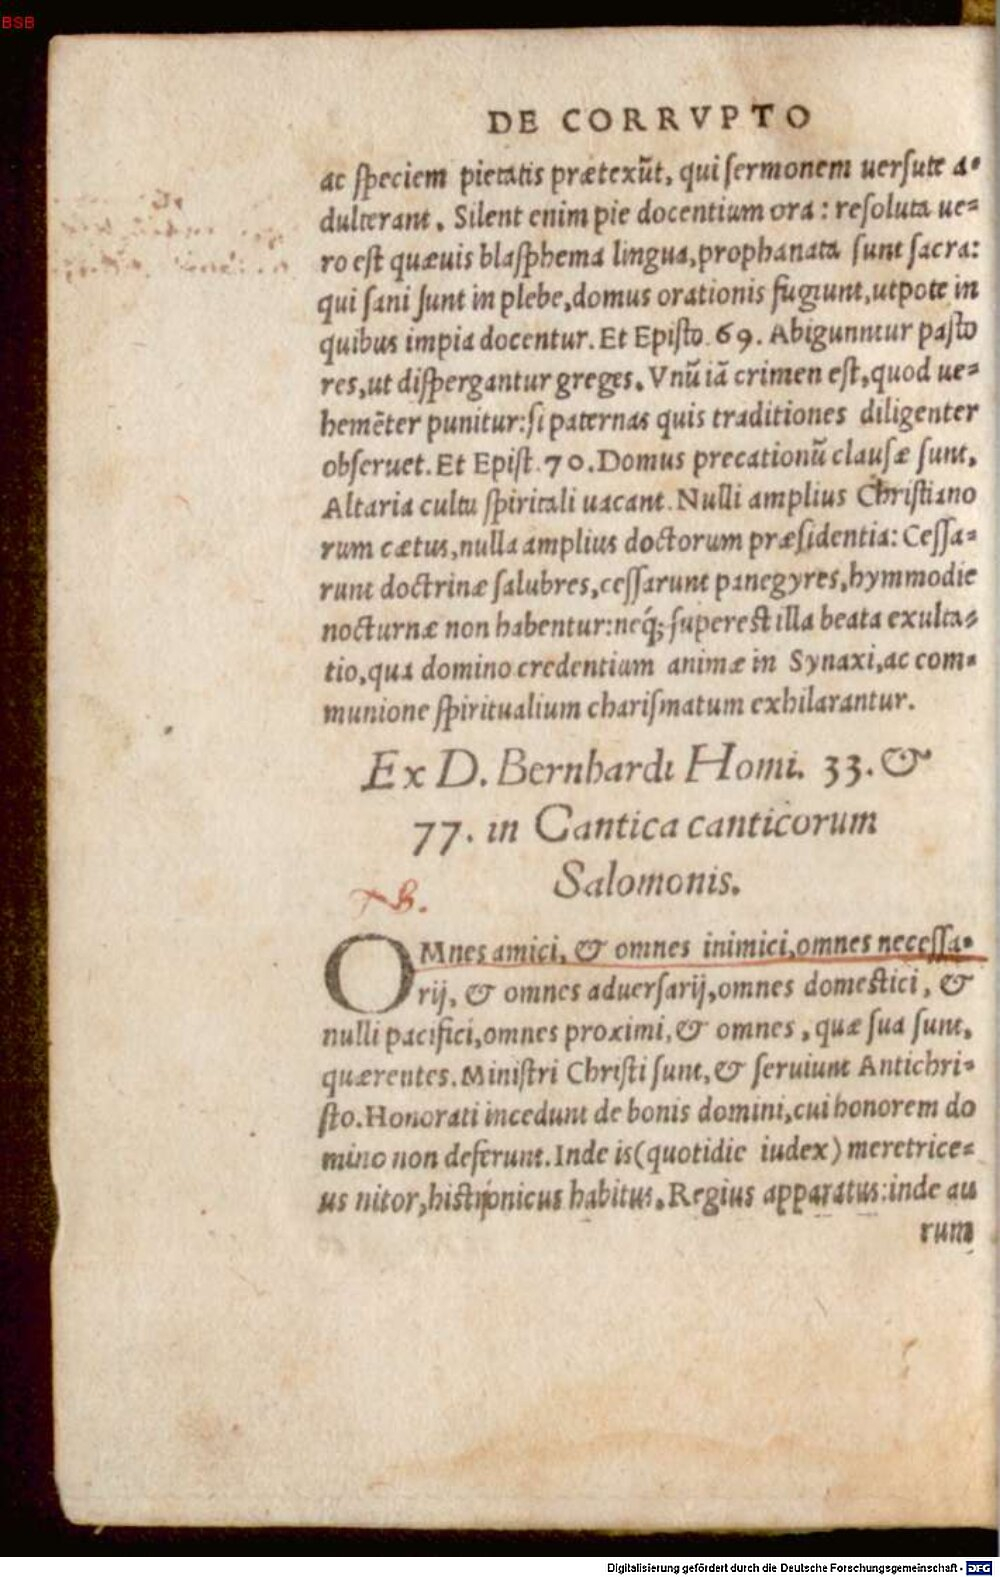 BSB
DE CORRVPTO
ac speciem pietatis prætexũt, qui sermonem uersute a-
dulterant. Silent enim pie docentium ora: resoluta ue-
ro est quæuis blasphema lingua, prophanata sunt sacra:
qui sani sunt in plebe, domus orationis fugiunt, utpote in
quibus impia docentur. Et Episto. 69. Abigunntur pasto
res, ut dispergantur greges. Vnũ iã crimen est, quod ue-
hemẽter punitur: si paternas quis traditiones diligenter
obseruet. Et Epist. 70. Domus precationũ clausæ sunt,
Altaria cultu spiritali uacant. Nulli amplius Christiano
rum cætus, nulla amplius doctorum præsidentia: Cessa-
runt doctrinæ salubres, cessarunt panegyres, hymmodie
nocturnæ non habentur: neq́; superest illa beata exulta-
tio, qua domino credentium animæ in Synaxi, ac com-
munione spiritualium charismatum exhilarantur.
Ex D. Bernhardi Homi. 33. &
77. in Cantica canticorum
Salomonis.
NB.
OMnes amici, & omnes inimici, omnes necessa-
rij, & omnes aduersarij, omnes domestici, &
nulli pacifici, omnes proximi, & omnes, quæ sua sunt,
quærentes. Ministri Christi sunt, & seruiunt Antichri-
sto. Honorati incedunt de bonis domini, cui honorem do
mino non deferunt. Inde is (quotidie iudex) meretrice-
us nitor, histrionicus habitus. Regius apparatus: inde au
rum
Digitalisierung gefördert durch die Deutsche Forschungsgemeinschaft - DFG